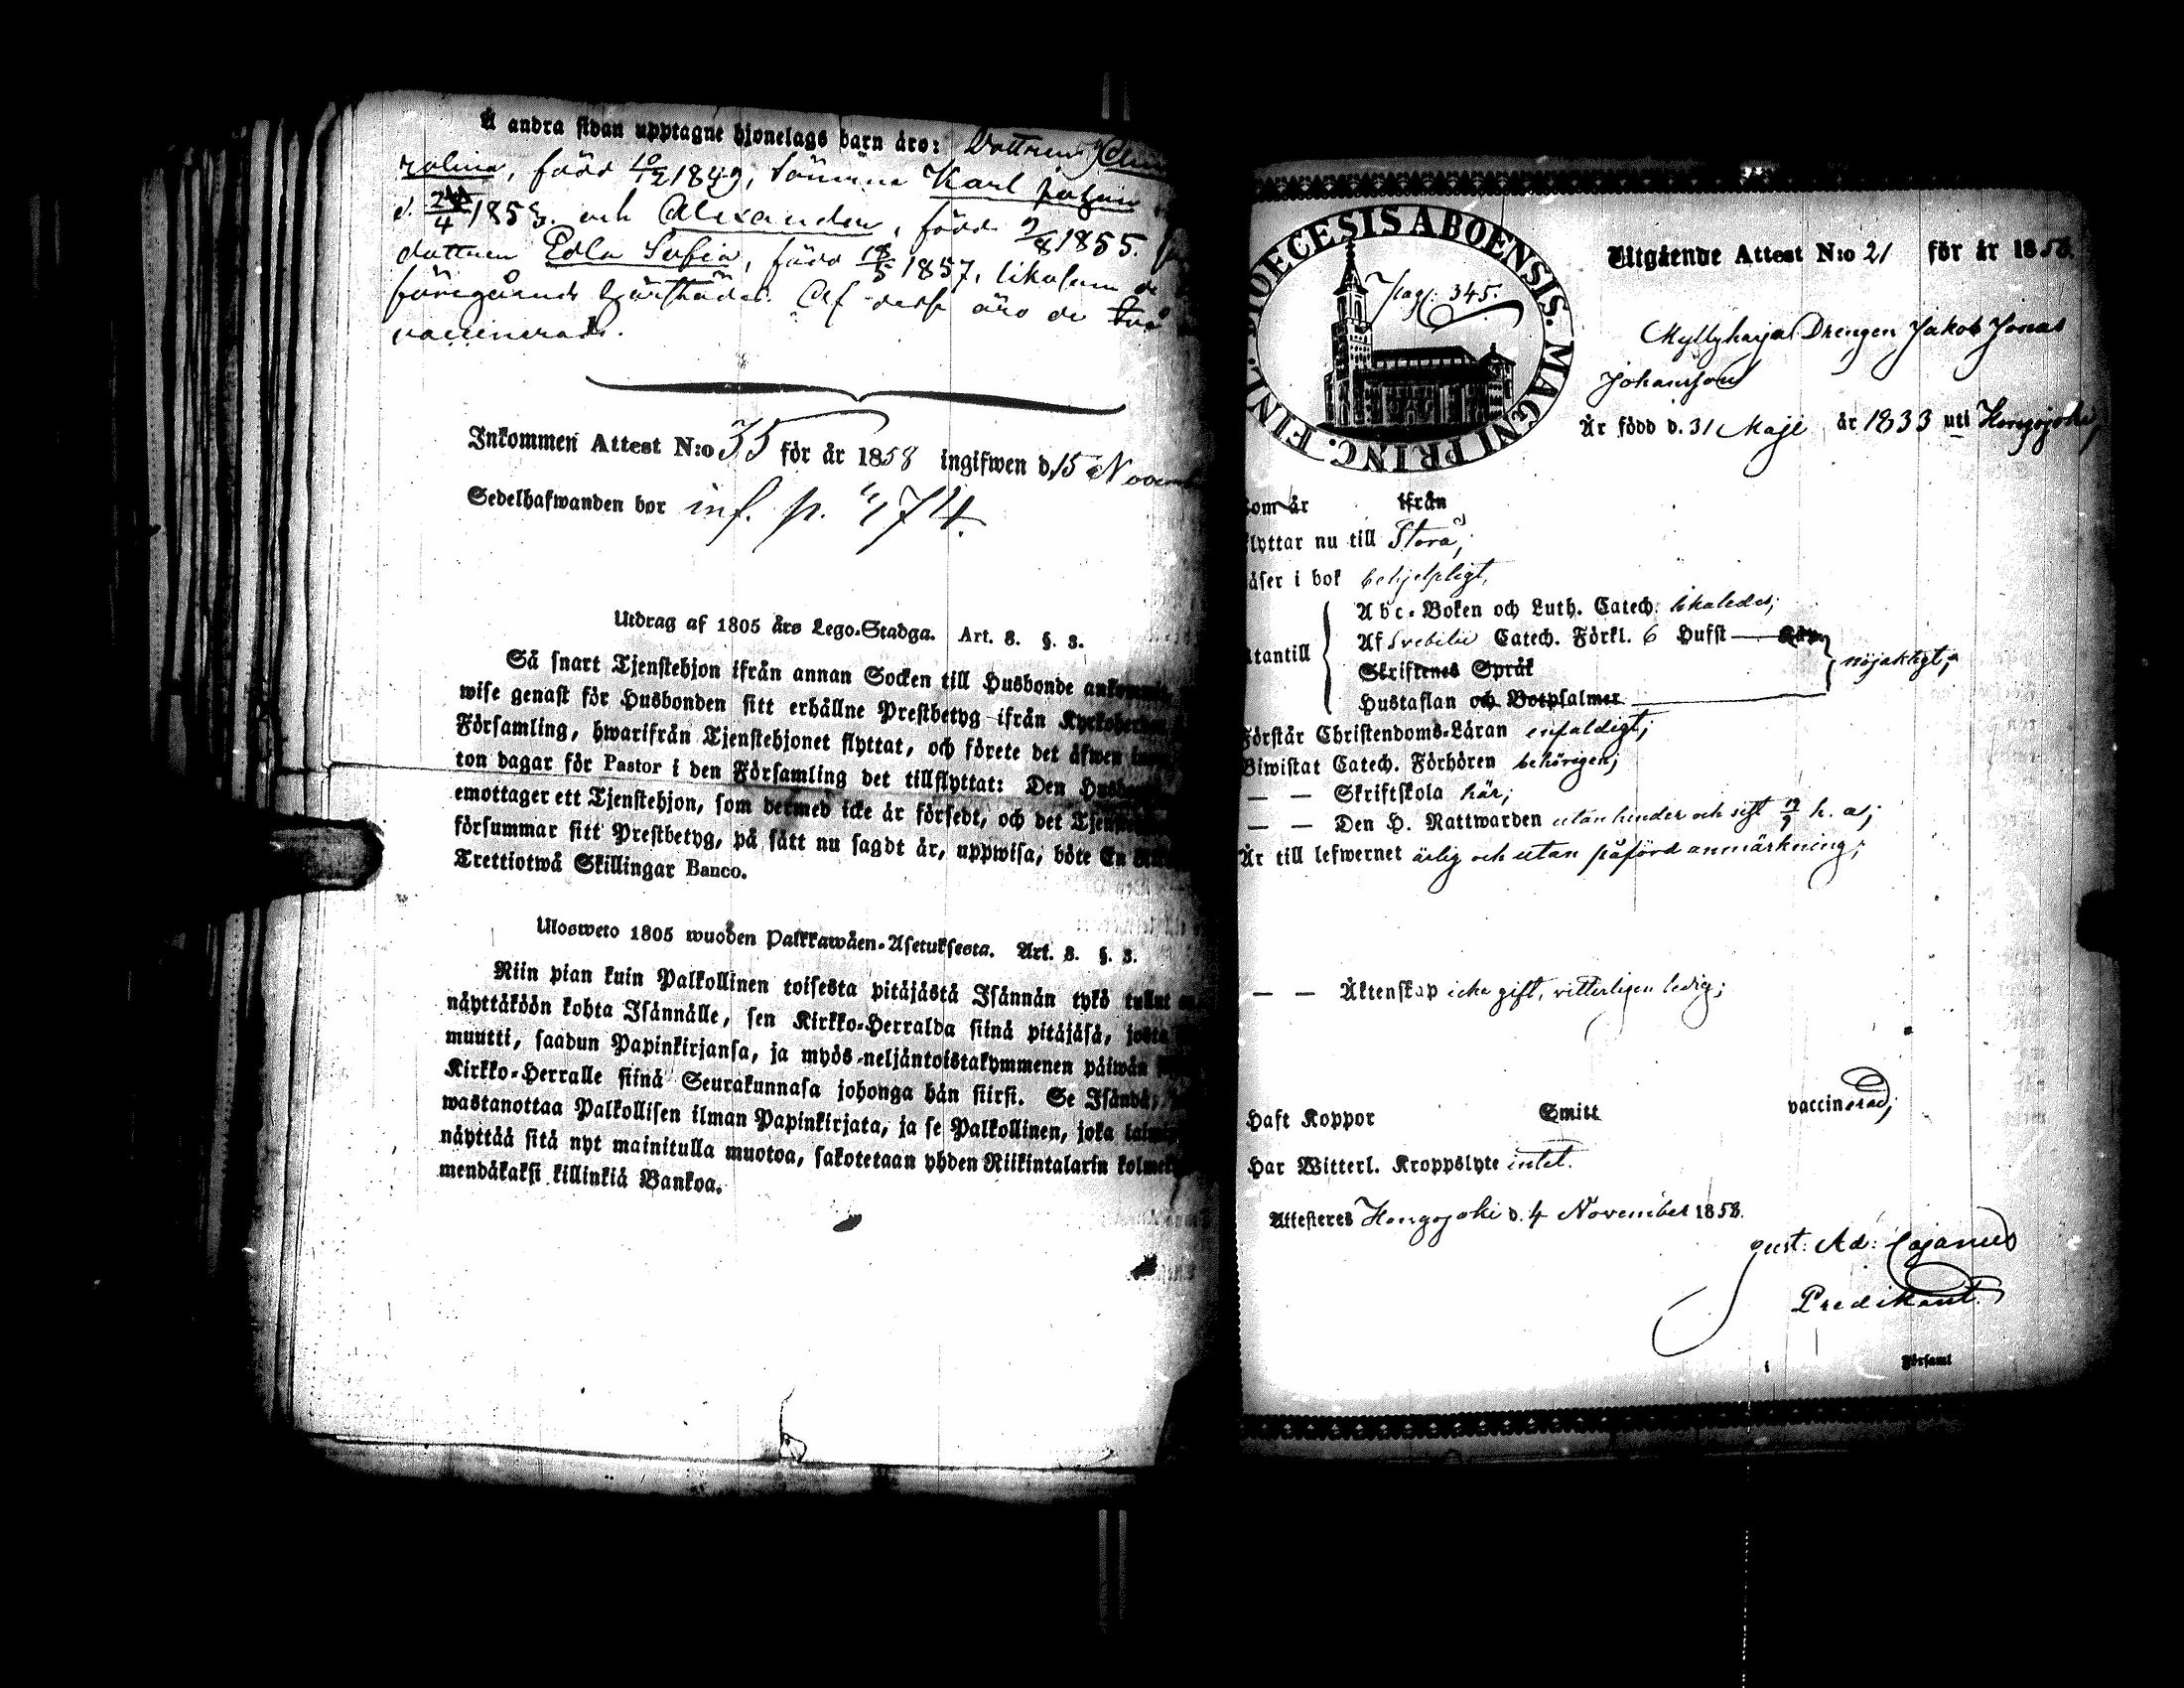 Å andra sidan upptagne hjonelags barn äro: Dottren
rolina, född 10/12 1849, Sönerne Karl
d. 24/4 1853. och Alexander, född 9/8 1855.
dottren Edla Sofia, född 18/5 1857, likasom de
föregående härstädes. Af desse äro de två
vaccinerade.
Inkommen Attest N:o 35 för år 1858 ingifwen d. 15 Novemb
Sedelhafwanden bor inf. p. 474.
Utdrag af 1805 års Lego-Stadga. Art. 8. §. 3.
Så snart Tjenstehjon ifrån annan Socken till Husbonde
wise genast för Husbonden sitt erhållne Prestbetyg ifrån
Församling, hwarifrån Tjenstehjonet flyttat, och förete det äfwen
ton dagar för Pastor i den Församling det tillflyttat: Den
emottager ett Tjenstehjon, som dermed icke är försedt, och det
försummar sitt Prestbetyg, på sätt nu sagdt är, uppwisa, böte En
Trettiotwå Skillingar Banco.
Ulosweto 1805 wuoden Palkkawäen-Asetuksesta. Art. 8. §. 3.
Niin pian kuin Palkollinen toisesta pitäjästä Isännän tykö tullut
näyttäköön kohta Isännälle, sen Kirkko-Herralda siinä pitäjäsä, josta
muutti, saadun Papinkirjansa, ja myös neljäntoistakymmenen päiwän
Kirkko-Herralle siinä Seurakunnasa johonga hän siirsi. Se Isändä,
wastanottaa Palkollisen ilman Papinkirjata, ja se Palkollinen, joka
näyttää sitä nyt mainitulla muotoa, sakotetaan yhden Riikintalarin
mendäkaksi killinkiä Bankoa.
DIOECESIS ABOENSIS. MAGNI PRINC. FINL.
Pag. 345.
Utgående Attest N:o 21 för år 1858.
Myllyharja Drengen Jakob Jonas
Johansson
Är född d. 31 Maji år 1833 uti Hongojoki,
om är ifrån
lyttar nu till Storå;
äser i bok behjelpligt,
tantill
Abc-Boken och Luth. Catech. likaledes;
Af Svebilii Catech. Förkl. 6 Hufst
Skriftenes Språk
Hustaflan och Botpsalmer
nöjaktigt;
Förstår Christendoms-Läran enfaldigt;
Biwistat Catech. Förhören behörigen;
— — Skriftskola här;
— — Den H. Nattwarden utan hinder och sist h. a;
Är till lefwernet ärlig och utan påförd anmärkning;
— — Äktenskap icke gift, vitterligen ledig;
Haft Koppor Smitt vaccinerad;
Har Witterl. Kroppslyte intet.
Attesteres Hongojoki d. 4 November 1858.
Gust: Ad: Cajanus
Predikant.
Församl